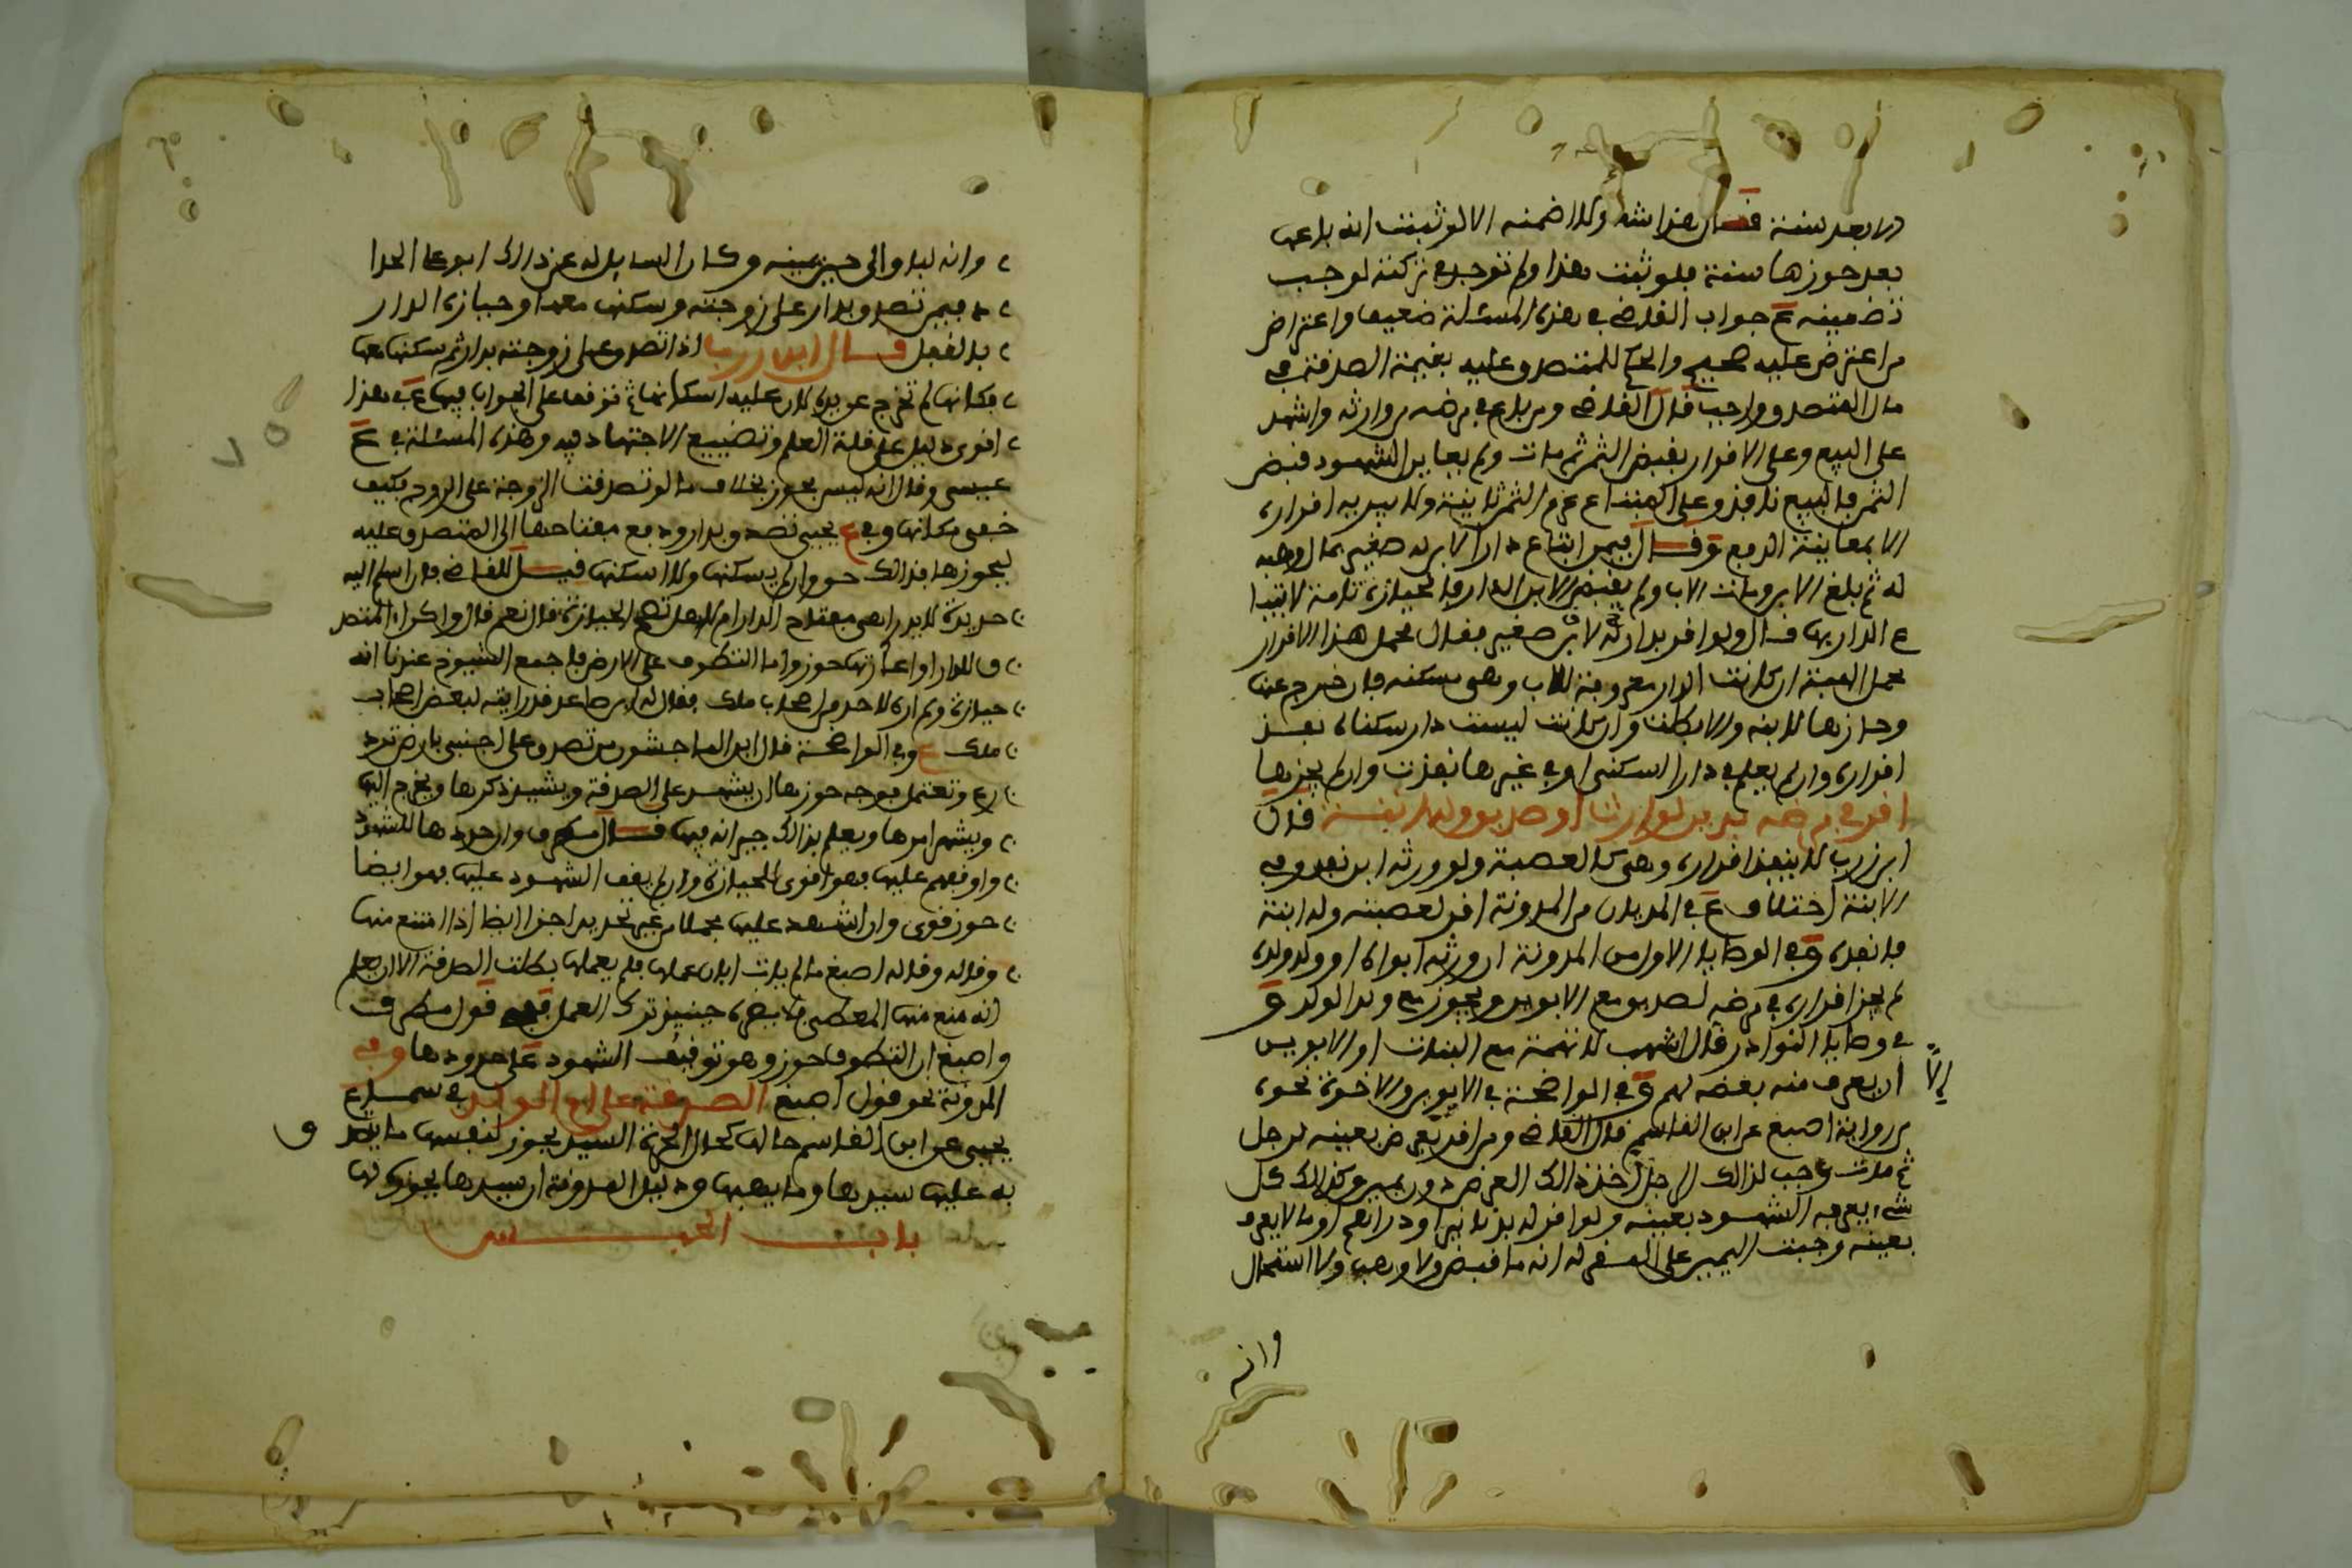 الا بعد سنة قال هذا شه ولا ضمنه الا لو ثبتت انه باعها
بعد حوزها سنة فلو ثبت هذا ولم توجد في تركته لوجب
تضمينه ع جواب القاضي في هذه المسئلة ضعيف واعتراض
من اعترض عليه صحيح والحكم للمتصدق عليه بقيمة الصدقة في
مال المتصدق واجب قال القاضي ومن باع في مرضه من وارثه واشهد
على البيع وعلى الاقرار بقبض الثمن ثم مات ولم يعاين الشهود قبض
الثمن فالبيع نافذ وعلى المبتاع غرم الثمن ثانية ولا يبريه اقراره
الا بمعاينة الدفع وقال فيمن ابتاع دارا لابن له صغير بمال وهبه
له ثم بلغ الابن ومات الاب ولم يقبض الابن الدار فالحيازة تامة لابتيا
ع الدار بها قال ولو اقر بدار له لابن صغير فقال محمل هذا الاقرار
محمل الهبة ان كانت الدار معروفة للاب وهي سكنه فان خرج عنها
وحازها لابنه والا بطلت وان كانت ليست دار سكناه نفذ
اقراره وان لم يعلم في دار السكنى او في غيرها نفذت وان لم يحزها
اقر في مرضه بدين لوارث او صديق وله ابنة قال
ابن زرب لا ينفذ اقراره وهي كالعصبة ولو ورثه ابن نفذ وفي
الابنة اختلاف ع في المديان من المدونة اقر لعصبته وله ابنة
فانفذه وفي الوصايا الاول من المدونة ان ورثه ابواه او ولد ولده
لم يجز اقراره في مرضه لصديق مع الابوين ويجوز مع ولد الولد و
في وصايا النوادر قال اشهب لا تهمة مع البنات او الابوين
الا ان يعرف منه بغضه لهم وفي الواضحة في الابوين والاخوة نحوه
من رواية اصبغ عن ابن القاسم قال القاضي ومن اقر بعرض بعينه لرجل
ثم مات وجب لذالك الرجل اخذ ذالك العرض دون يمين وكذالك كل
شيء يعرفه الشهود بعينه ولو اقر له بدنانير او دراهم او ما لا يعرف
بعينه وجبت اليمين على المقر له انه ما قبض ولا وهب ولا استحال
وانه
وانه لباق الى حين يمينه وكان السايل له عن ذالك ابو علي الحدا
د فيمن تصدق بدار على زوجته وسكنها معها وحيازة الدار
بالقفل قال ابن زرب اذا تصدق على زوجته بدار ثم سكنها معها
فكانها لم تخرج عن يده لان عليه اسكانها ثم توقف على الجواب فيها ع في هذا
اقوى دليل على قلة العلم وتضييع الاجتهاد فيه وهذه المسئلة في ع
عيسى وقال انه ليس بحوز بخلاف ما لو تصدقت الزوجة على الزوج فكيف
خفي مكانها وفي ع يحيى تصدق بدار ودفع مفتاحها الى المتصدق عليه
ليحوزها فذالك حوز وان لم يسكنها ولا اسكنها قيل للقاضي فان اسلم اليه
حديدة لا يدرا هي مفتاح الدار ام لا هل تصح الحيازة قال نعم قال واكراء المتصد
ق للدار او اعارتها حوز واما التطوف على الارض فاجمع الشيوخ عندنا انه
حيازة ولم اره لاحد من اصحاب ملك فقال له ابن صاعد قد رايته لبعض اصحاب
ملك ع وفي الواضحة قال ابن الماجشون من تصدق على اجنبي بارض تزد
رع وتعتمل فوجه حوزها ان يشهد على الصدقة ويشيد ذكرها ويخرج اليها
ويشهر امرها ويعلم بذالك جيرانه فيها قال مطرف وان حددها للشهود
واوقفهم عليها فهو اقوى للحيازة وان لم يقف الشهود عليها فهو ايضا
حوز قوي وان اشهد عليها مجملا من غير تحديد اجزا ايضا اذا امتنع منها
وقاله وقاله اصبغ ما لم يات ابان عملها فلم يعملها بطلت الصدقة الا ان يعلم
انه منع منها المعطي فلا يضره حينيذ ترك العمل قول مطرف
واصبغ ان التطوف حوز وهو توقيف الشهود على حدودها وفي
المدونة نحو قول اصبغ الصدقة على ام الولد في سماع
يحيى عن ابن القاسم حالها كحال الحرة السيد يحوز لنفسها ما يتصد
ق
به عليها سيدها وما يهبها ودليل المدونة ان سيدها يحوز لها
باب الحبس